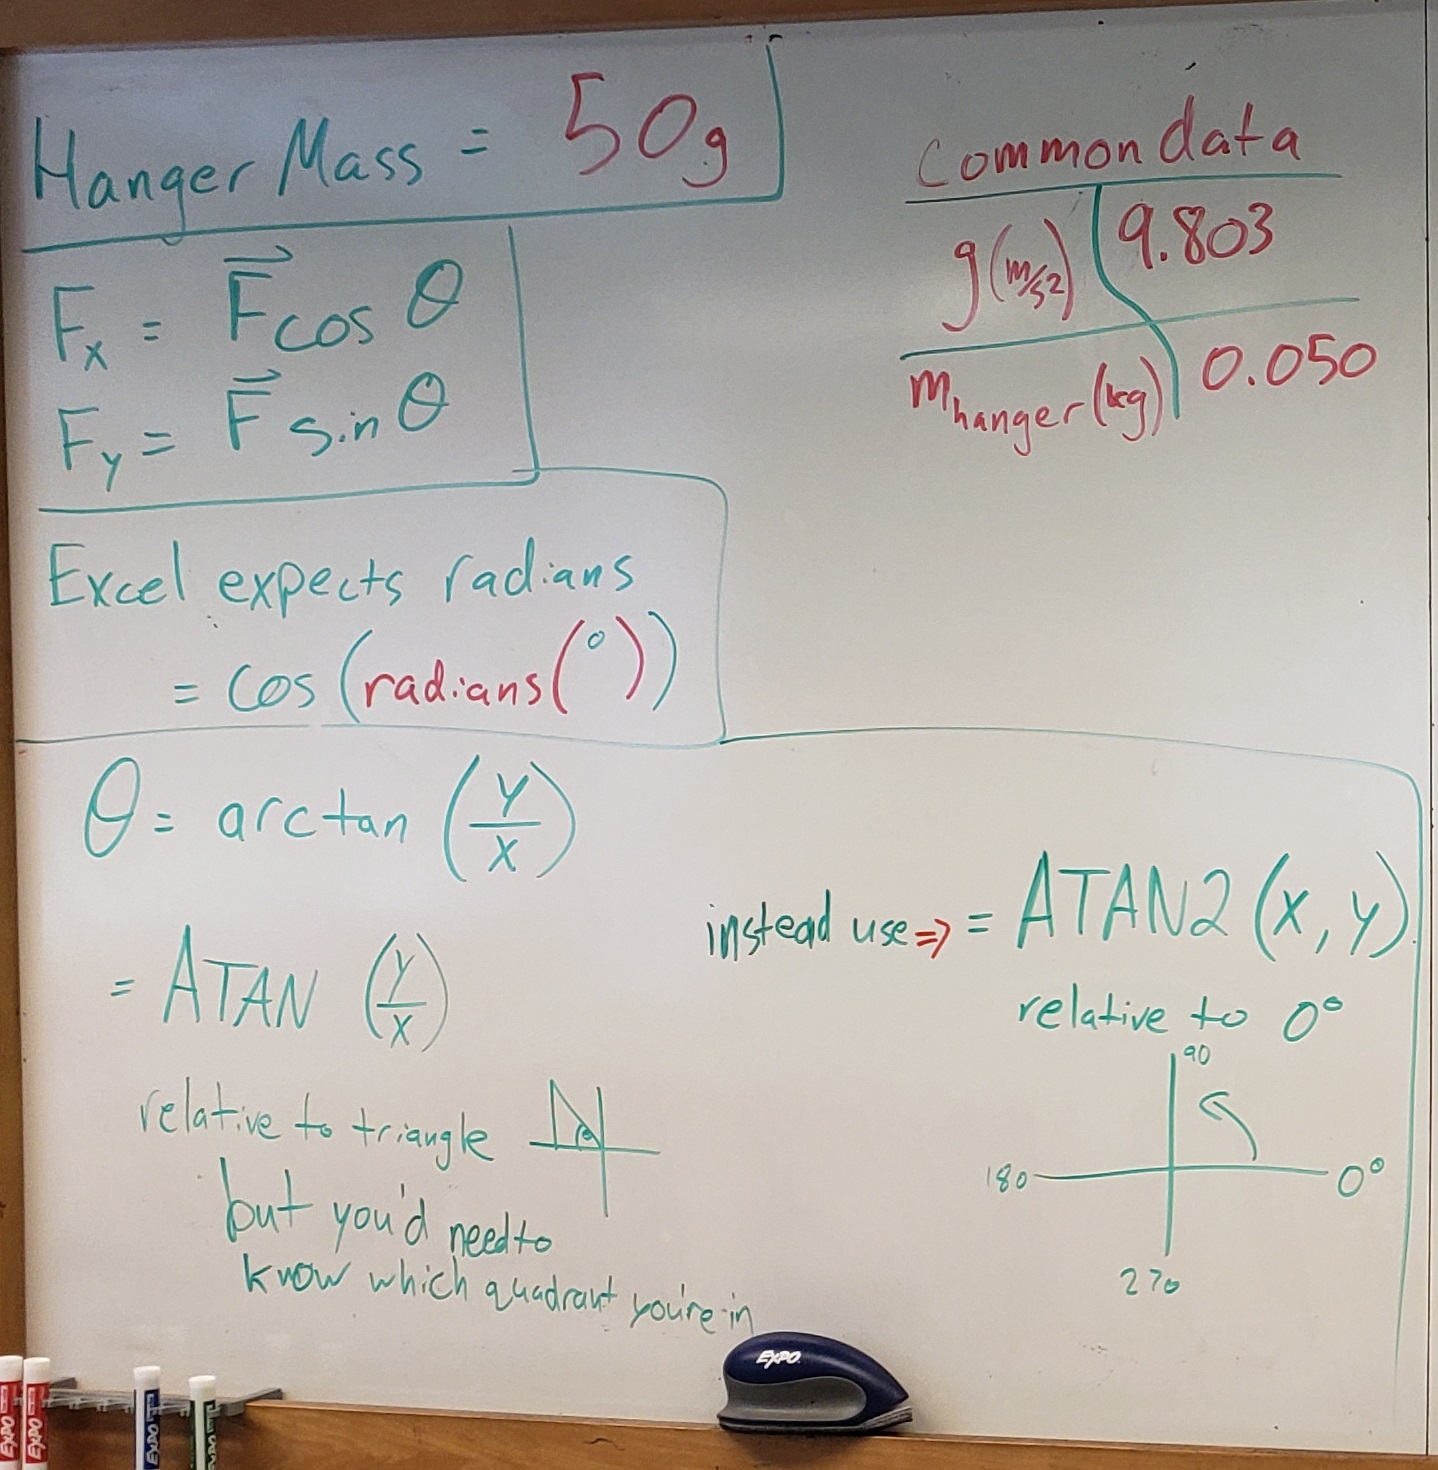 Hanger Mass = 50g
Common data
g (m/s2) 9.803
m hanger (kg) 0.050
Fx = F cos θ
Fy = F sin θ
Excel expects radians
= cos (radians(°))
θ = arctan (y/x)
= ATAN (y/x)
relative to triangle
but you'd need to
know which quadrant you're in
instead use ⇒ = ATAN2 (x, y)
relative to 0°
90
180
0°
270
EXPO
EXPO
EXPO
EXPO
EXPO